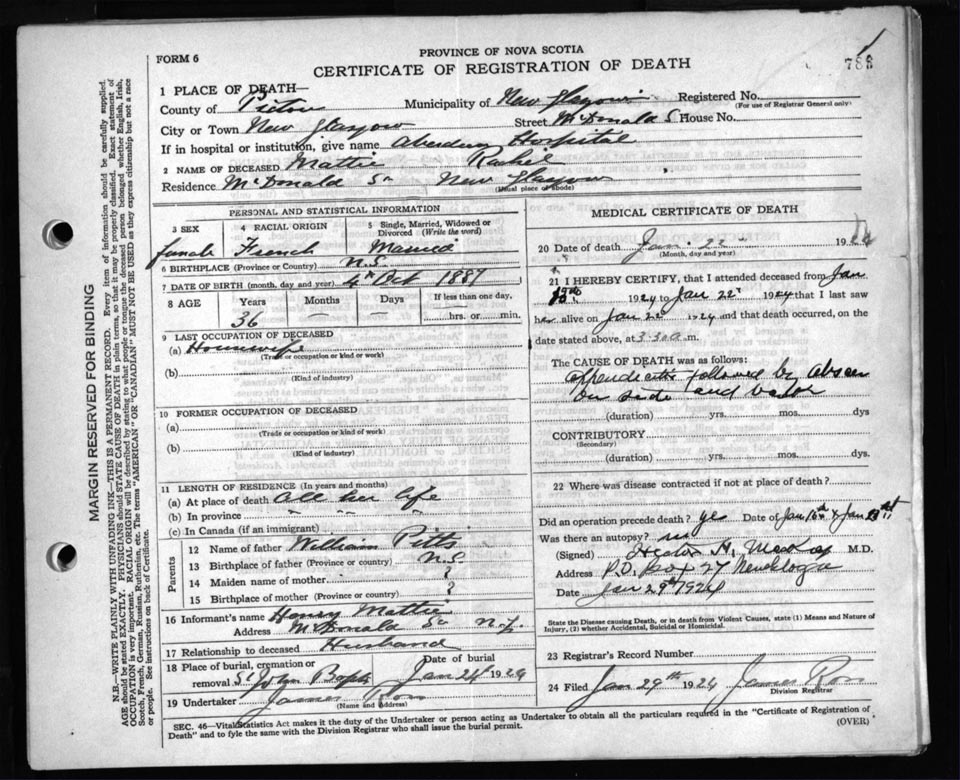 PROVINCE OF NOVA SCOTIA
FORM 6
CERTIFICATE OF REGISTRATION OF DEATH
788
1 PLACE OF DEATH—
County of Pictou Municipality of New Glasgow Registered No.
(For use of Registrar General only)
City or Town New Glasgow Street McDonald St House No.
If in hospital or institution, give name Aberdeen Hospital
2 NAME OF DECEASED Mattie Rachel
Residence McDonald St New Glasgow
(Usual place of abode)
PERSONAL AND STATISTICAL INFORMATION
3 SEX 4 RACIAL ORIGIN 5 Single, Married, Widowed or Divorced (Write the word)
female French Married
6 BIRTHPLACE (Province or Country) N.S.
7 DATE OF BIRTH (month, day and year) 4th Oct 1887
8 AGE Years Months Days If less than one day,
36 hrs. or min.
9 LAST OCCUPATION OF DECEASED
(a) Housewife
(Trade or occupation or kind or work)
(b)
(Kind of industry)
10 FORMER OCCUPATION OF DECEASED
(a)
(Trade or occupation or kind of work)
(b)
(Kind of industry)
11 LENGTH OF RESIDENCE (In years and months)
(a) At place of death All her life
(b) In province " " "
(c) In Canada (if an immigrant)
Parents
12 Name of father William Pitts
13 Birthplace of father (Province or country) N.S.
14 Maiden name of mother ?
15 Birthplace of mother (Province or country) ?
16 Informant's name Henry Mattie
Address McDonald St N.G.
17 Relationship to deceased Husband
18 Place of burial, cremation or removal St John Bapts Date of burial Jan 24 1924
19 Undertaker James Ross
(Name and Address)
MEDICAL CERTIFICATE OF DEATH
20 Date of death Jan. 22 1924
(Month, day and year)
21 I HEREBY CERTIFY, that I attended deceased from Jan
1924 to Jan 22nd 1924 that I last saw
her alive on Jan 22nd 1924 and that death occurred, on the
date stated above, at 3 30 a m.
The CAUSE OF DEATH was as follows:
appendicitis followed by abscess
on side and back
(duration) yrs. mos. dys
CONTRIBUTORY
(Secondary)
(duration) yrs. mos. dys.
22 Where was disease contracted if not at place of death?
Did an operation precede death? yes Date of Jan 16th & Jan
Was there an autopsy? no
(Signed) H. McKay M.D.
Address P.O. Box 27 New Glasgow
Date Jan 29th 1924
State the Disease causing Death, or in death from Violent Causes, state (1) Means and Nature of Injury, (2) whether Accidental, Suicidal or Homicidal.
23 Registrar's Record Number
24 Filed Jan 29th 1924 James Ross
Division Registrar
SEC. 46—Vital Statistics Act makes it the duty of the Undertaker or person acting as Undertaker to obtain all the particulars required in the "Certificate of Registration of
Death" and to fyle the same with the Division Registrar who shall issue the burial permit.
(OVER)
MARGIN RESERVED FOR BINDING
N.B.—WRITE PLAINLY WITH UNFADING INK—THIS IS A PERMANENT RECORD. Every item of information should be carefully supplied.
AGE should be stated EXACTLY. PHYSICIANS should STATE CAUSE OF DEATH in plain terms, so that it may be properly classified. Exact statement of
OCCUPATION is very important. RACIAL ORIGIN will be described by stating to what people or tongue the deceased person belonged whether English, Irish,
Scotch, French, German, Russian, Ruthenian, etc. The terms "AMERICAN" OR "CANADIAN" MUST NOT BE USED as they express citizenship but not a race
or people. See instructions on back of Certificate.